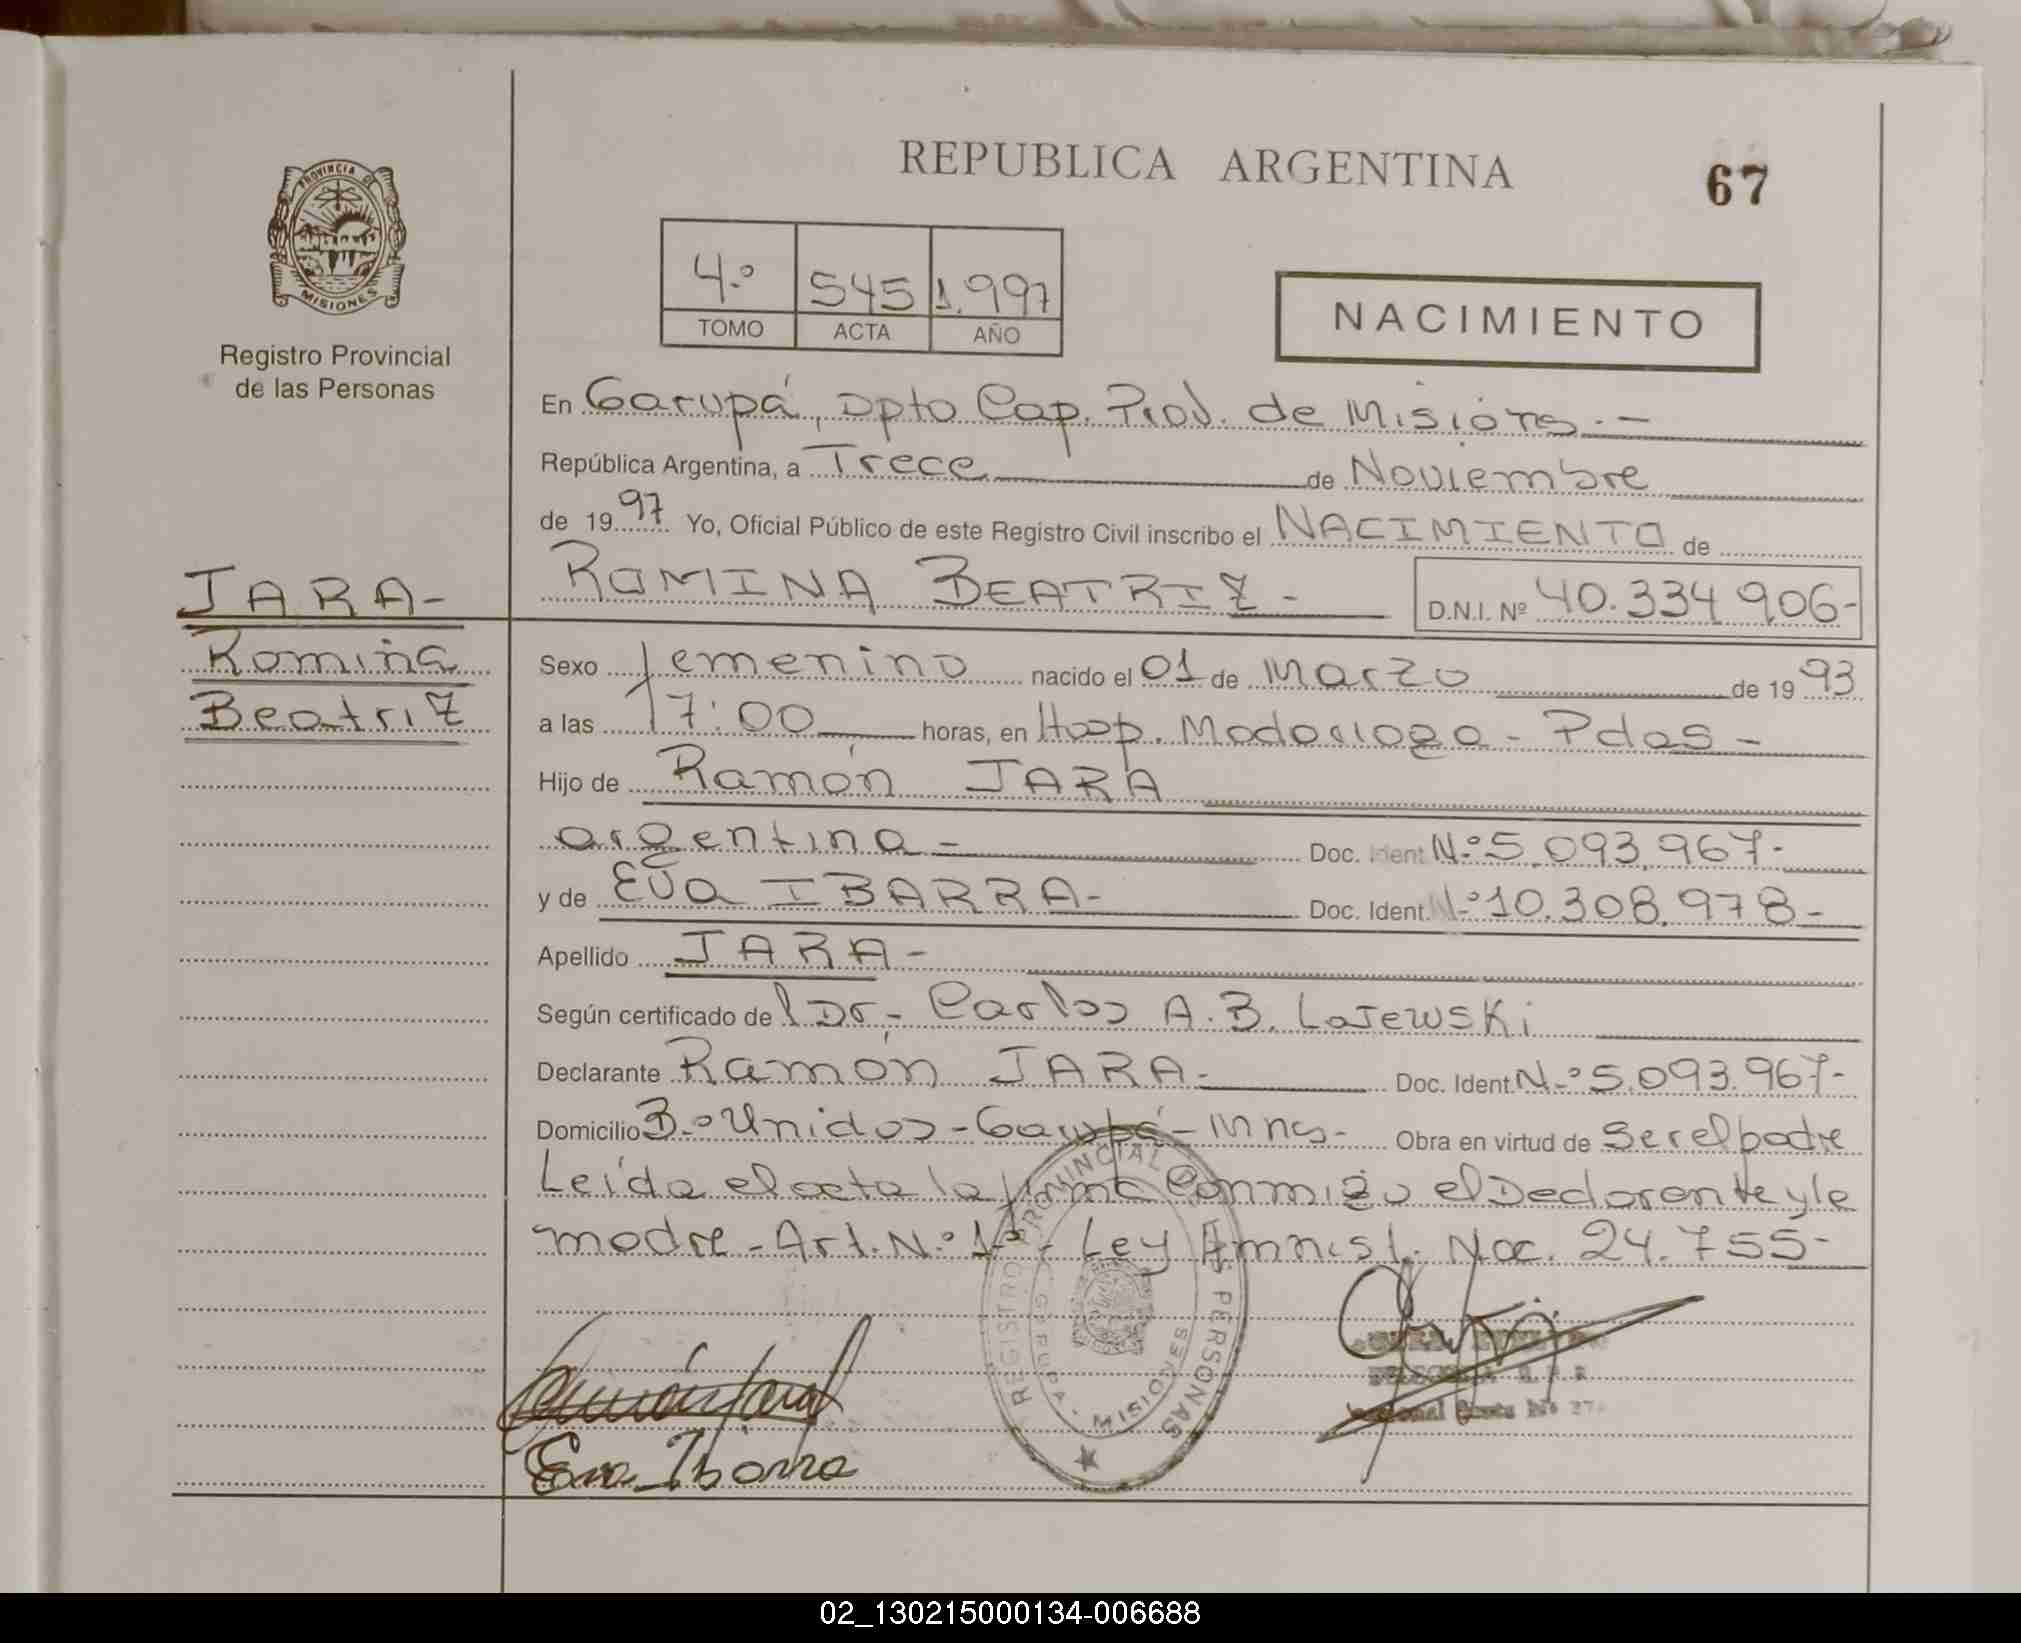 REPUBLICA ARGENTINA
67
PROVINCIA DE
MISIONES
Registro Provincial
de las Personas
4.º 545 1.997
TOMO ACTA AÑO
NACIMIENTO
En Garupá, Dpto Cap. Prov. de Misiones.-
República Argentina, a Trece de Noviembre
de 1997 Yo, Oficial Público de este Registro Civil inscribo el NACIMIENTO de
ROMINA BEATRIZ - D.N.I. Nº 40.334 906-
JARA-
Romina
Beatriz
Sexo femenino nacido el 01 de Marzo de 1993
a las 17:00 horas, en Hosp. Madariaga - Pdas -
Hijo de Ramón JARA
argentina - Doc. Ident N.º 5.093.967-
y de Eva IBARRA- Doc. Ident. N.º 10.308.978-
Apellido JARA-
Según certificado del Dr.- Carlos A.B. Lajewski
Declarante Ramón JARA- Doc. Ident. N.º 5.093.967-
Domicilio B.º Unidos - Garupá - Mnes- Obra en virtud de ser el padre
Leída el acta la firma Conmigo el Declarante y la
madre - Art. N.º 1º - Ley Amnist. Nac. 24.755-
REGISTRO PROVINCIAL DE PERSONAS
GARUPA - MISIONES
Ramón Jara
Eva Ibarra
02_130215000134-006688